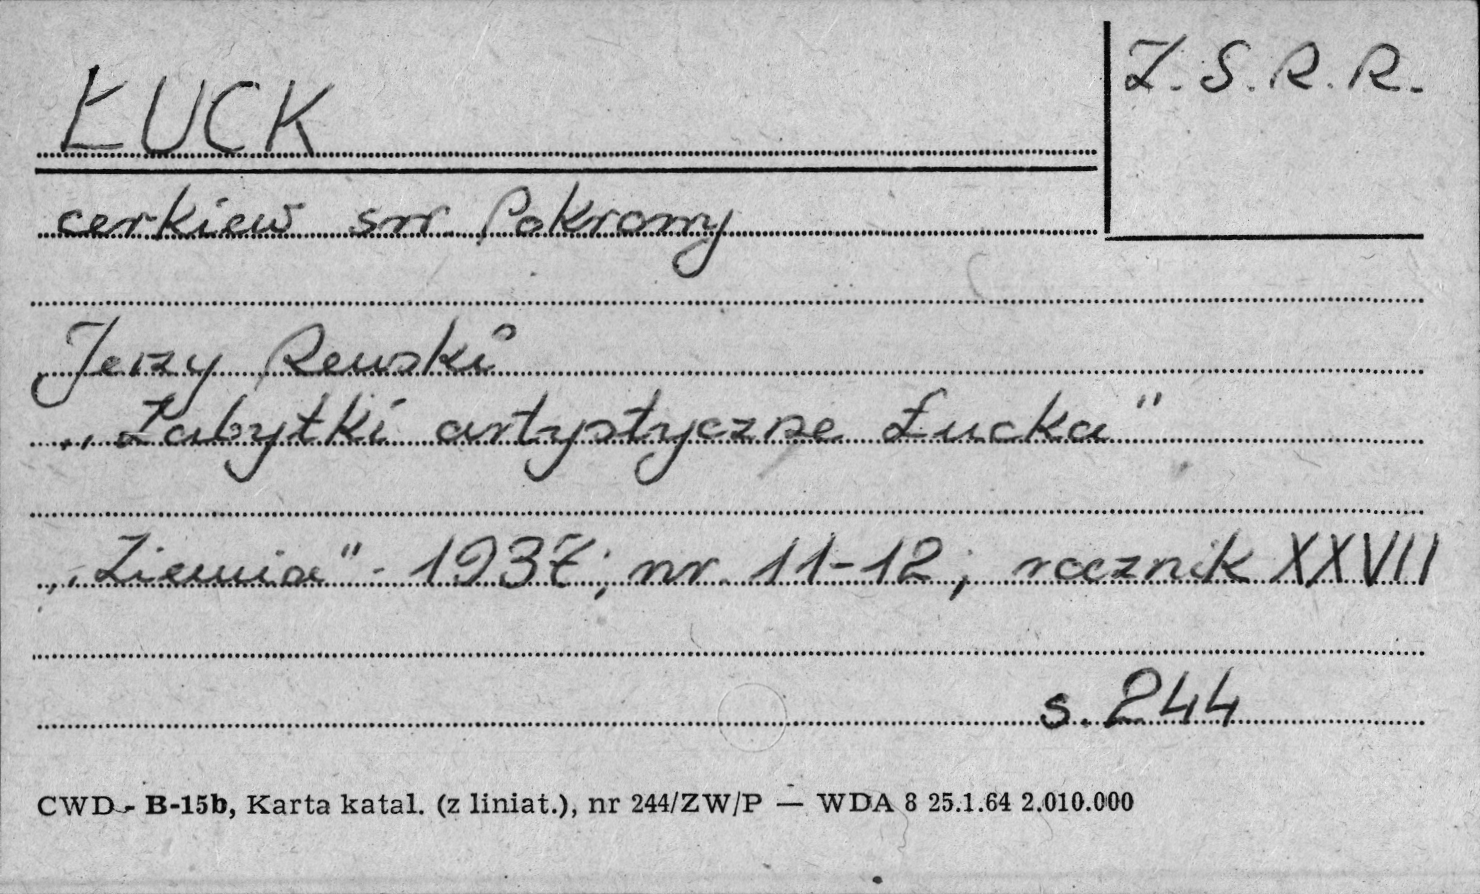 ŁUCK
Z.S.R.R.
cerkiew św. Pokrowy
Jerzy Rewski
„Zabytki artystyczne Łucka"
„Ziemia" - 1937; nr. 11-12; rocznik XXVII
s. 244
CWD - B-15b, Karta katal. (z liniat.), nr 244/ZW/P — WDA 8 25.1.64 2.010.000